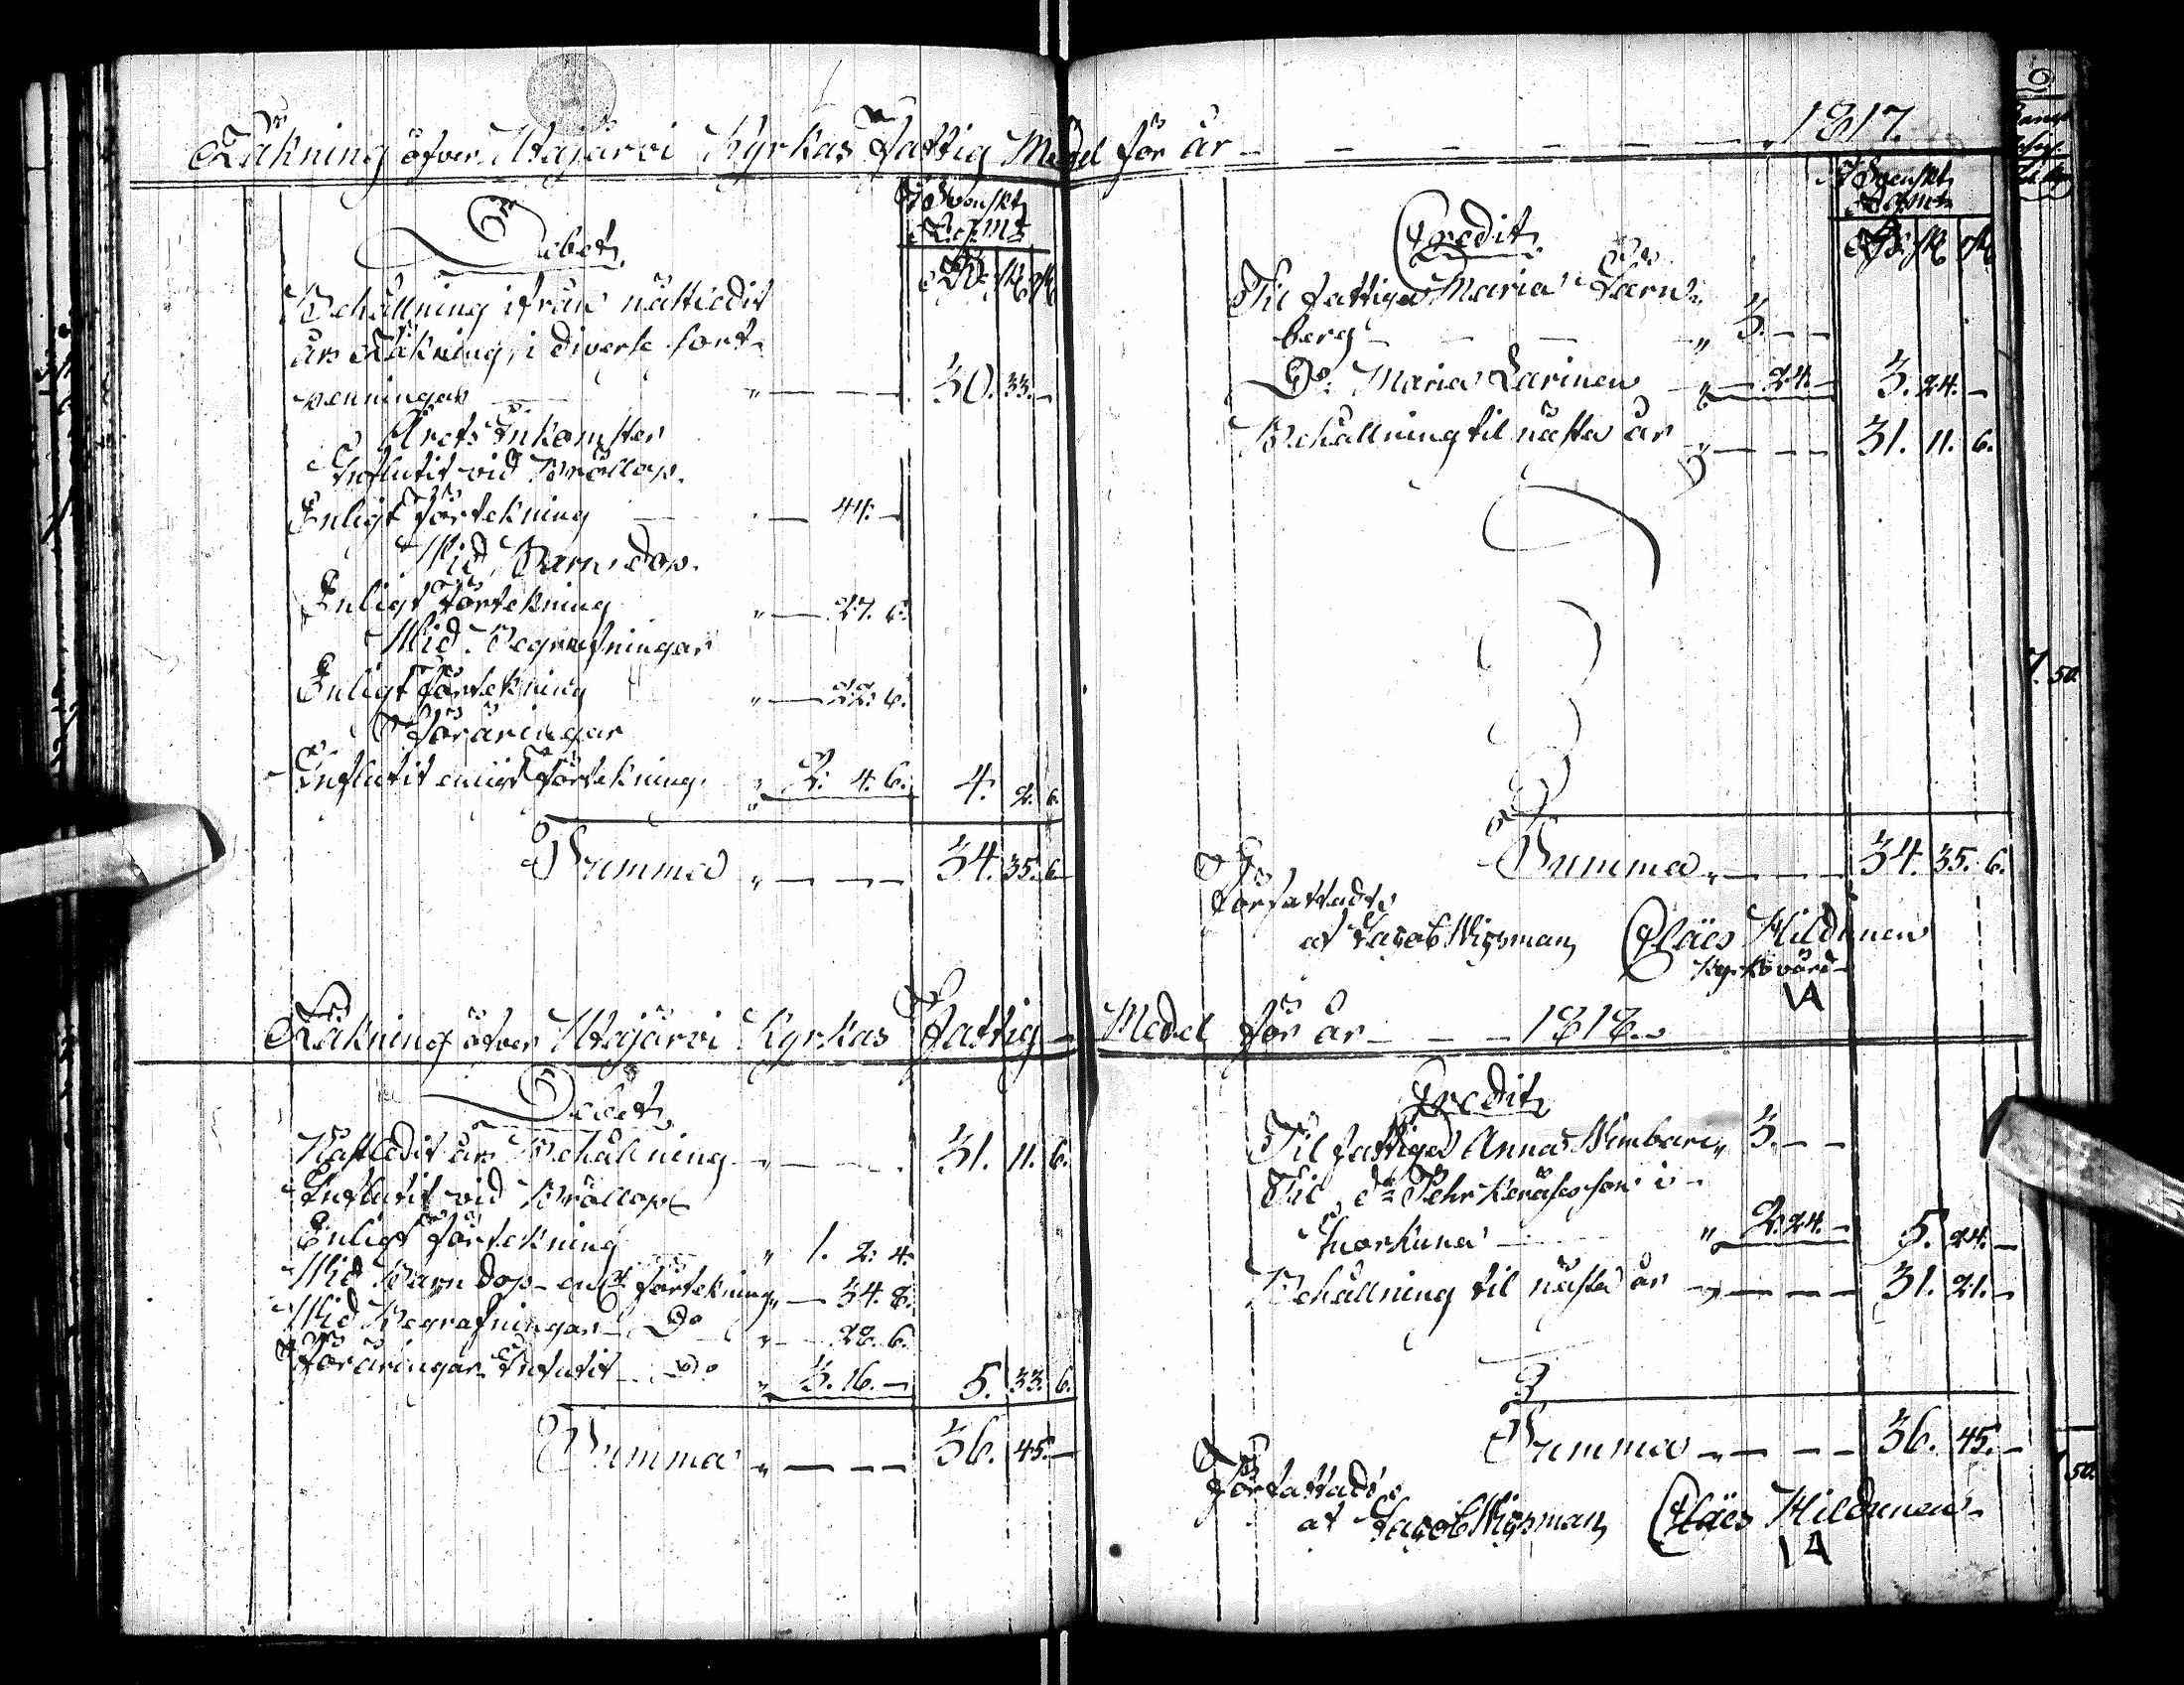 Räkning öfver Utajärvi Kyrkas Fattig Medel för år — — — — — 1817.
Debet
I Svenskt
R.g.mt
Rd. sk. rst.
Behållning ifrån nästledit
års Räkning, i diverse sort-
penningar " — — — 30. 33. —
Årets Inkomster
Influtit vid Bröllop.
Enligt förtekning — 44. —
Wid Barndop.
Enligt förtekning " — 27. 6.
Wid Begrafningar
Enligt förtekning " — 22. 6.
Föräringar
Influtit enligt förtekning " 2. 4. 6. 4. 2. 6.
Summa " — — — 34. 35. 6.
Credit
I Svenskt
R.g.mt
Rd. sk. rst.
Til fattiga Maria
berg — — — " 3. — —
Do. Maria Larinen " — 24. — 3. 24. —
Behållning til nästa år " — — — 31. 11. 6.
Summa " — — — 34. 35. 6.
Författadt
af Jacob Wigman Claës Hildunen
Kyrkovärd
Räkning öfver Utajärvi Kyrkas Fattig- Medel för år — — — 1818.
Debet
Nästledit års Behållning " — — — 31. 11. 6.
Influtit vid Bröllop
Enligt förtekning " 1. 2. 4.
Wid Barndop enl. förtekning " — 34. 8.
Wid Begrafningar Do " — 28. 6.
Föräringar Influtit Do " 3. 16. — 5. 33. 6.
Summa " — — — 36. 45. —
Credit
Til fattiga Anna " 3. — —
Til do Pehr i
" 2. 24. — 5. 24. —
Behållning til nästa år " — — — 31. 21. —
Summa " — — — 36. 45. —
Författadt
af Jacob Wigman Claës Hildunen